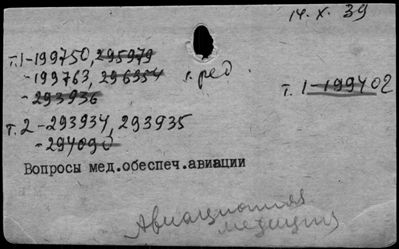 14.X.39
т.1-199750, 295979
-199763, 296354 к.ред
-293936
т. 1-199402
т.2-293934, 293935
-294090
Вопросы мед.обеспеч.авиации
Авиационная
медицина